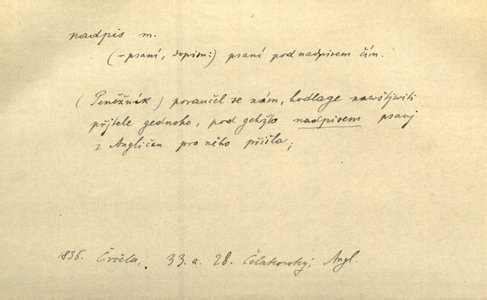 nadpis m.
(-psaní, dopisu:) psaní pod nadpisem čím.
(Peněžník) poraučel se nám, hodlage nawštjwiti
přjtele gednoho, pod gehožto nadpisem psanj
z Angličan pro něho přišla;
1835. Čwčela. 33.a. 28. Čelakowský, Angl.